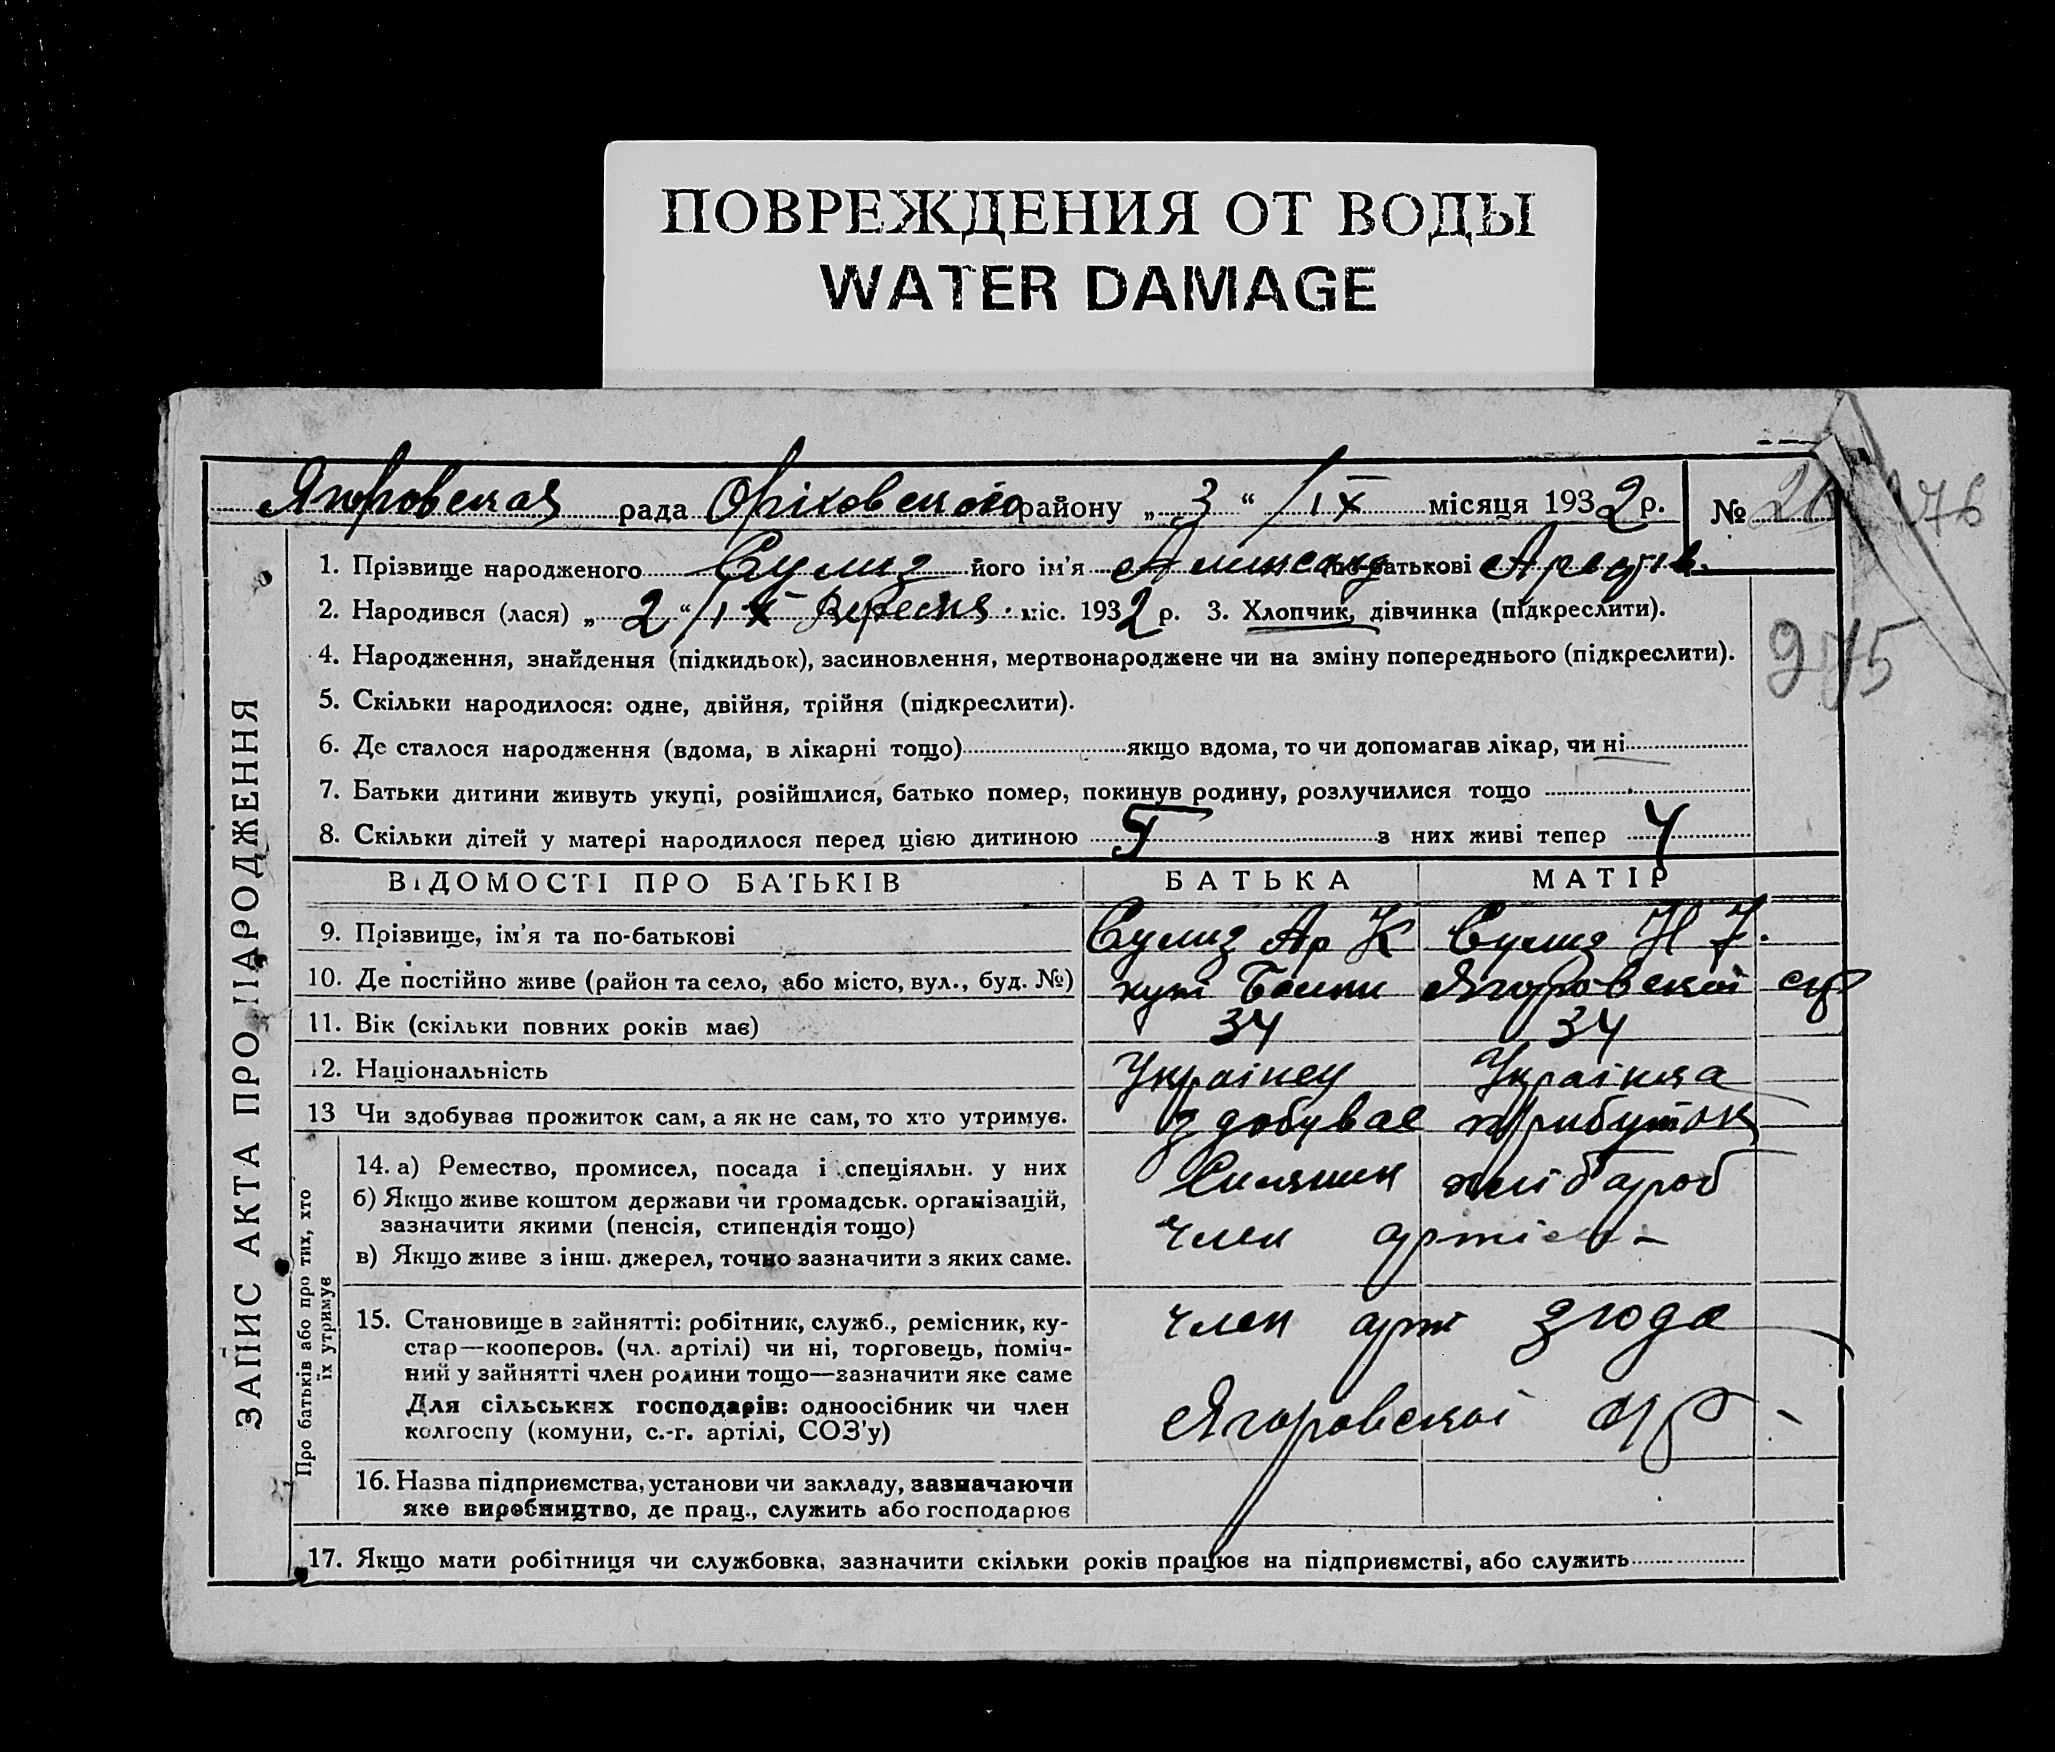 ПОВРЕЖДЕНИЯ ОТ ВОДЫ
WATER DAMAGE
рада Оріховського району „ 3 “ /IX місяця 1932 р. №
ЗАПИС АКТА ПРО НАРОДЖЕННЯ
1. Прізвище народженого його ім'я по-батькові
2. Народився (лася) „ 2 “ /IX Вересня міс. 1932 р. 3. Хлопчик, дівчинка (підкреслити).
4. Народження, знайдення (підкидьок), засиновлення, мертвонароджене чи на зміну попереднього (підкреслити).
975
5. Скільки народилося: одне, двійня, трійня (підкреслити).
6. Де сталося народження (вдома, в лікарні тощо) якщо вдома, то чи допомагав лікар, чи ні
7. Батьки дитини живуть укупі, розійшлися, батько помер, покинув родину, розлучилися тощо
8. Скільки дітей у матері народилося перед цією дитиною 5 з них живі тепер 4
ВІДОМОСТІ ПРО БАТЬКІВ БАТЬКА МАТІР
9. Прізвище, ім'я та по-батькові
10. Де постійно живе (район та село, або місто, вул., буд. №) хут
11. Вік (скільки повних років має) 34 34
12. Національність Українец Українка
13 Чи здобуває прожиток сам, а як не сам, то хто утримує. здобувае прибуток
Про батьків або про тих, хто їх утримує
14. а) Ремество, промисел, посада і спеціяльн. у них
б) Якщо живе коштом держави чи громадськ. організацій,
зазначити якими (пенсія, стипендія тощо) член
в) Якщо живе з інш. джерел, точно зазначити з яких саме.
15. Становище в зайнятті: робітник, служб., ремісник, ку-
стар—кооперов. (чл. артілі) чи ні, торговець, поміч- член арт згода
ний у зайнятті член родини тощо—зазначити яке саме
Для сільських господарів: одноосібник чи член
колгоспу (комуни, с.-г. артілі, СОЗ'у)
16. Назва підприємства, установи чи закладу, зазначаючи
яке виробництво, де прац., служить або господарює
17. Якщо мати робітниця чи службовка, зазначити скільки років працює на підприємстві, або служить